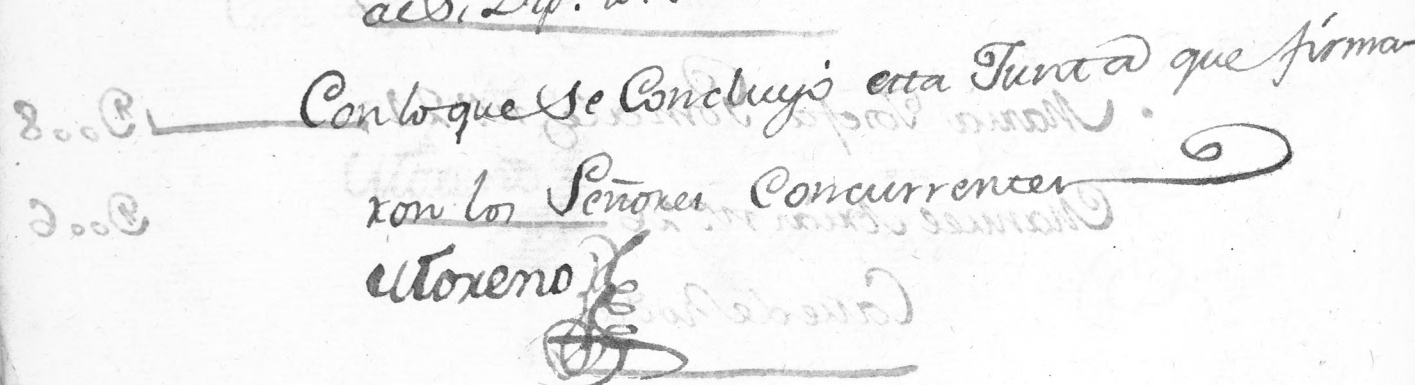 Con lo que se Concluyó esta Junta que firma-
ron los Señores Concurrentes
Moreno